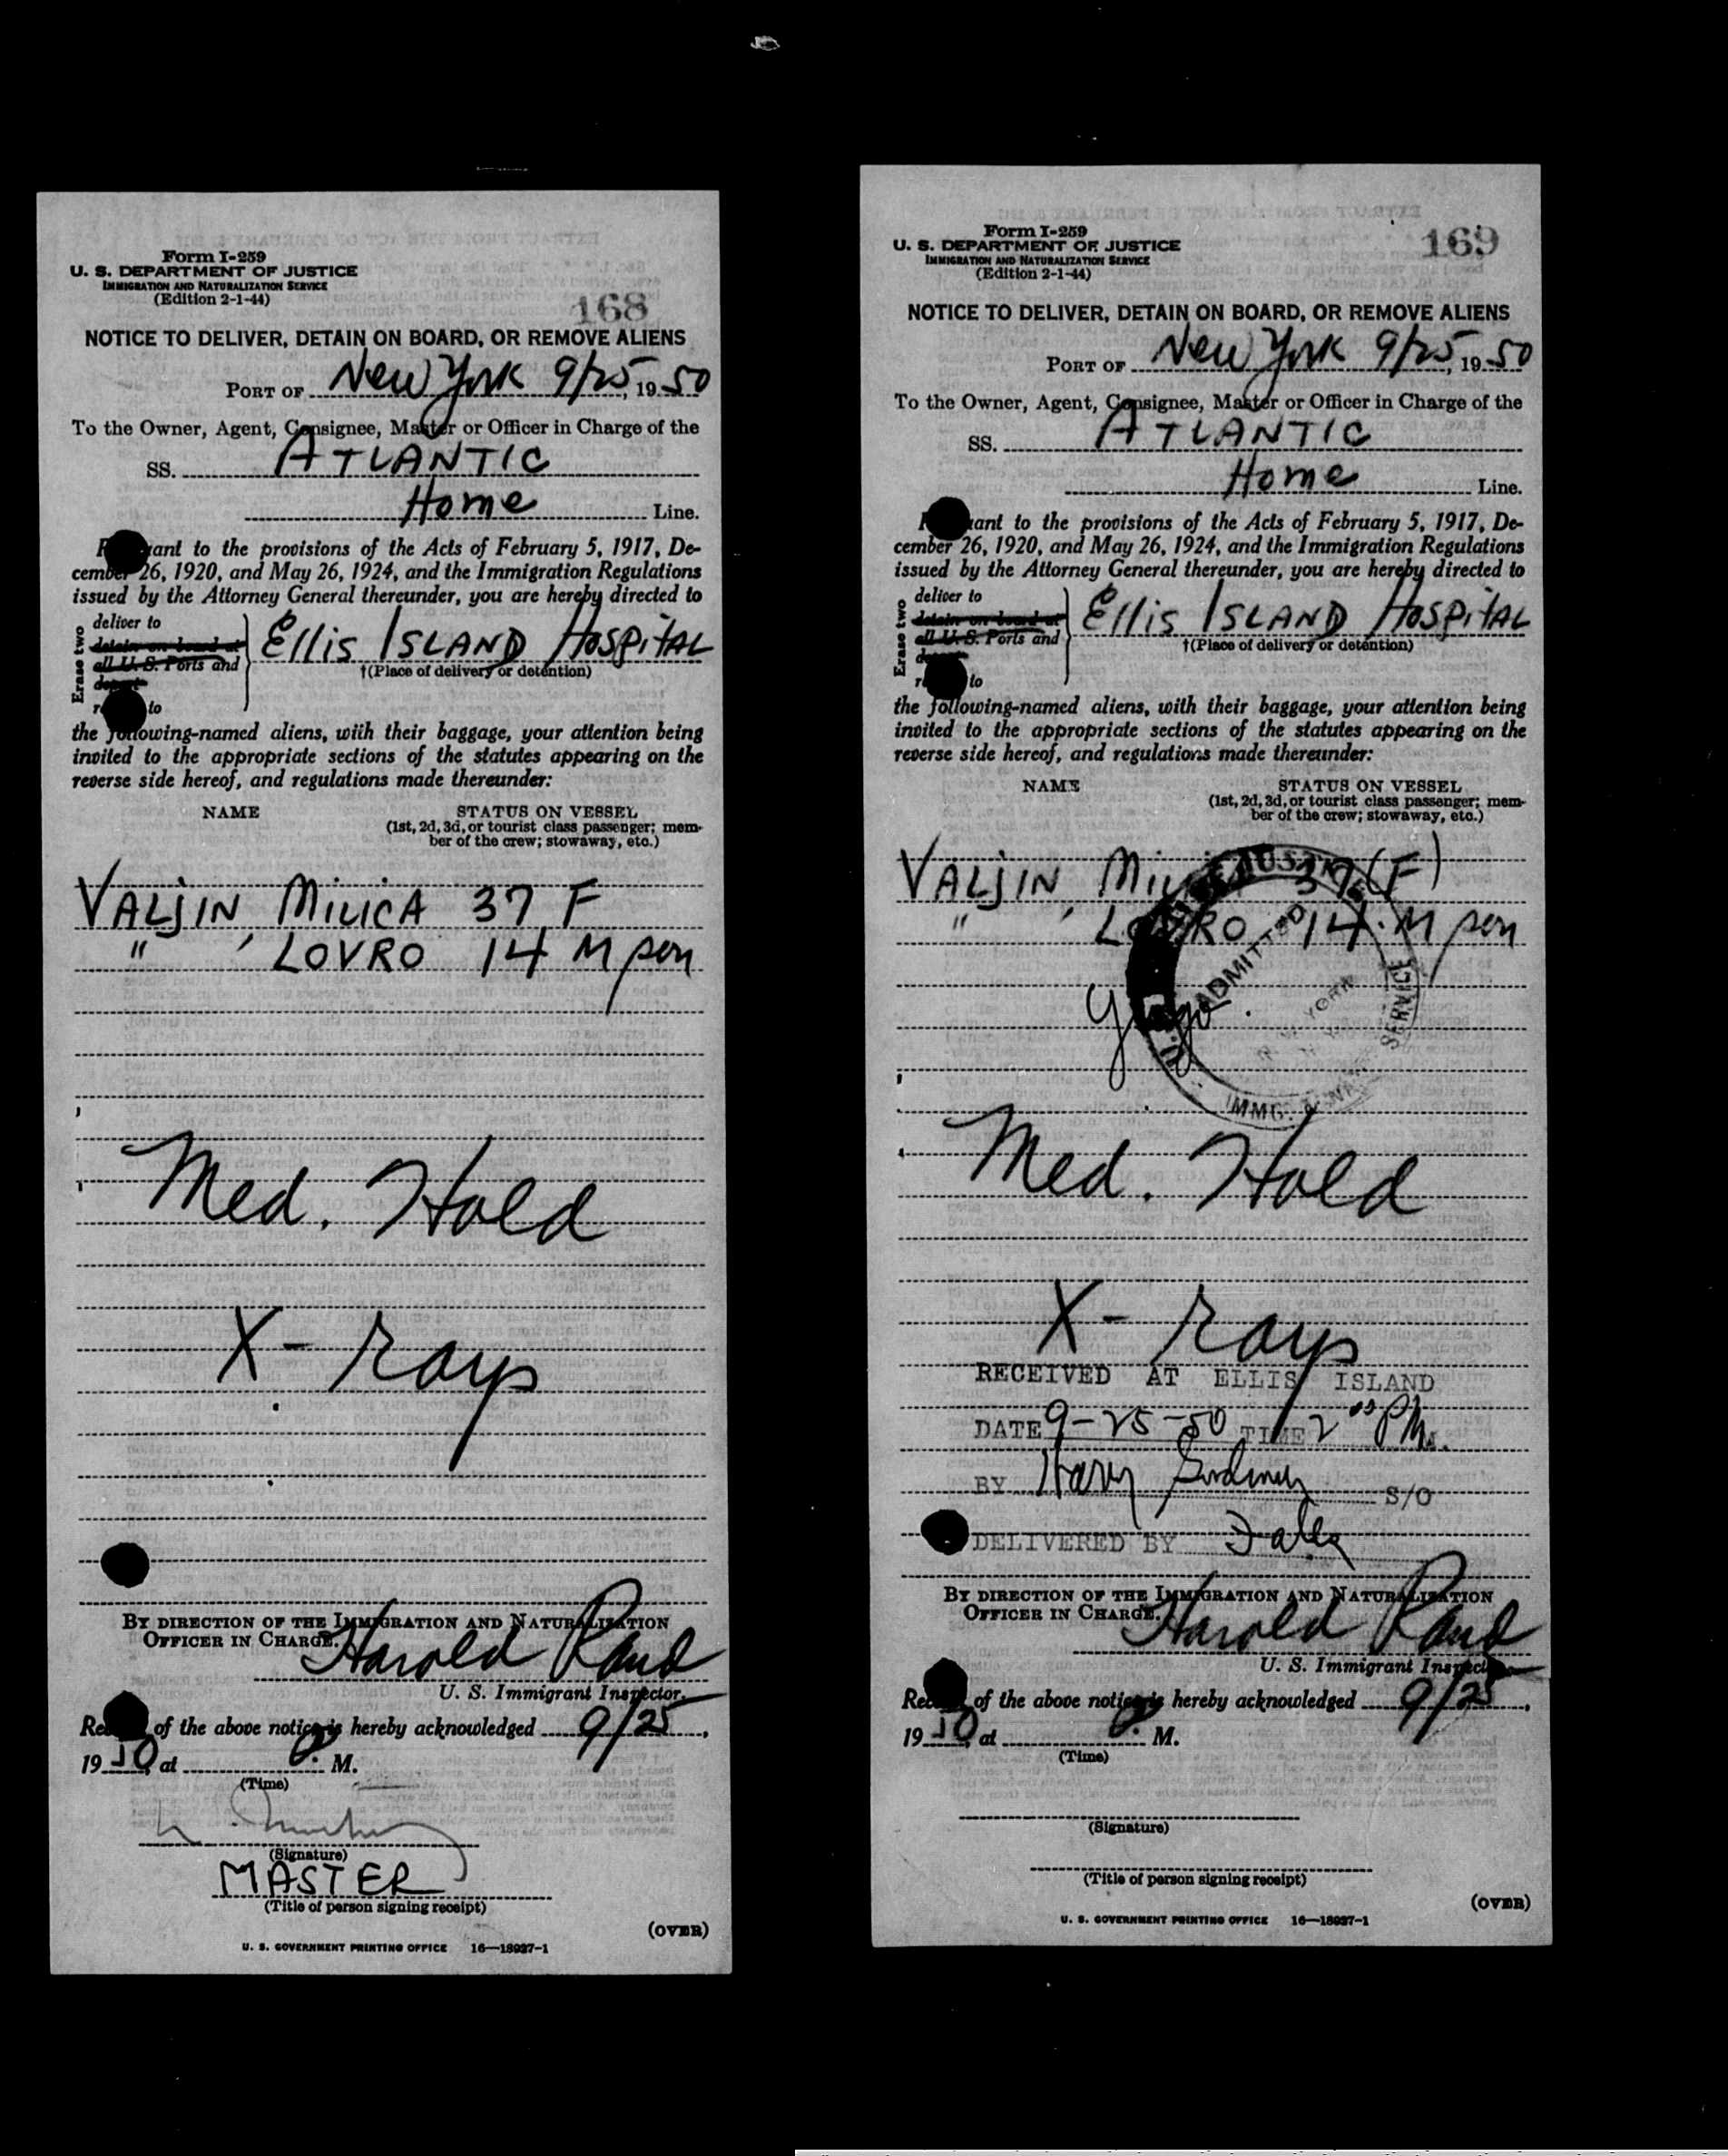 Form I-259
U. S. DEPARTMENT OF JUSTICE
IMMIGRATION AND NATURALIZATION SERVICE
(Edition 2-1-44)
168
NOTICE TO DELIVER, DETAIN ON BOARD, OR REMOVE ALIENS
PORT OF New York 9/25, 1950
To the Owner, Agent, Consignee, Master or Officer in Charge of the
SS. ATLANTIC
Home Line.
ant to the provisions of the Acts of February 5, 1917, De-
cember 26, 1920, and May 26, 1924, and the Immigration Regulations
issued by the Attorney General thereunder, you are hereby directed to
Erase two
deliver to
detain on board at
all U. S. Ports and
to
Ellis ISLAND HOSPITAL
†(Place of delivery or detention)
the following-named aliens, with their baggage, your attention being
invited to the appropriate sections of the statutes appearing on the
reverse side hereof, and regulations made thereunder:
NAME STATUS ON VESSEL
(1st, 2d, 3d, or tourist class passenger; mem-
ber of the crew; stowaway, etc.)
VALJIN, MILICA 37 F
" , LOVRO 14 M son
Med. Hold
X-rays
BY DIRECTION OF THE IMMIGRATION AND NATURALIZATION
OFFICER IN CHARGE.
Harold Rand
U. S. Immigrant Inspector.
of the above notice is hereby acknowledged 9/25,
1950 at M.
(Time)
(Signature)
MASTER
(Title of person signing receipt)
(OVER)
U. S. GOVERNMENT PRINTING OFFICE 16—18027-1
Form I-259
U. S. DEPARTMENT OF JUSTICE
IMMIGRATION AND NATURALIZATION SERVICE
(Edition 2-1-44)
169
NOTICE TO DELIVER, DETAIN ON BOARD, OR REMOVE ALIENS
PORT OF New York 9/25, 1950
To the Owner, Agent, Consignee, Master or Officer in Charge of the
SS. ATLANTIC
Home Line.
ant to the provisions of the Acts of February 5, 1917, De-
cember 26, 1920, and May 26, 1924, and the Immigration Regulations
issued by the Attorney General thereunder, you are hereby directed to
Erase two
deliver to
detain on board at
all U. S. Ports and
to
Ellis ISLAND HOSPITAL
†(Place of delivery or detention)
the following-named aliens, with their baggage, your attention being
invited to the appropriate sections of the statutes appearing on the
reverse side hereof, and regulations made thereunder:
NAME STATUS ON VESSEL
(1st, 2d, 3d, or tourist class passenger; mem-
ber of the crew; stowaway, etc.)
VALJIN, 37 (F)
" , LOVRO 14 M son
ADMITTED
NEW YORK
IMMG. & SERVICE
Med. Hold
X-rays
RECEIVED AT ELLIS ISLAND
DATE 9-25-50 TIME 2 00 PM.
BY Harry S/O
DELIVERED BY
BY DIRECTION OF THE IMMIGRATION AND NATURALIZATION
OFFICER IN CHARGE.
Harold Rand
U. S. Immigrant Inspector
of the above notice is hereby acknowledged 9/25,
1950 at M.
(Time)
(Signature)
(Title of person signing receipt)
(OVER)
U. S. GOVERNMENT PRINTING OFFICE 16—18027-1